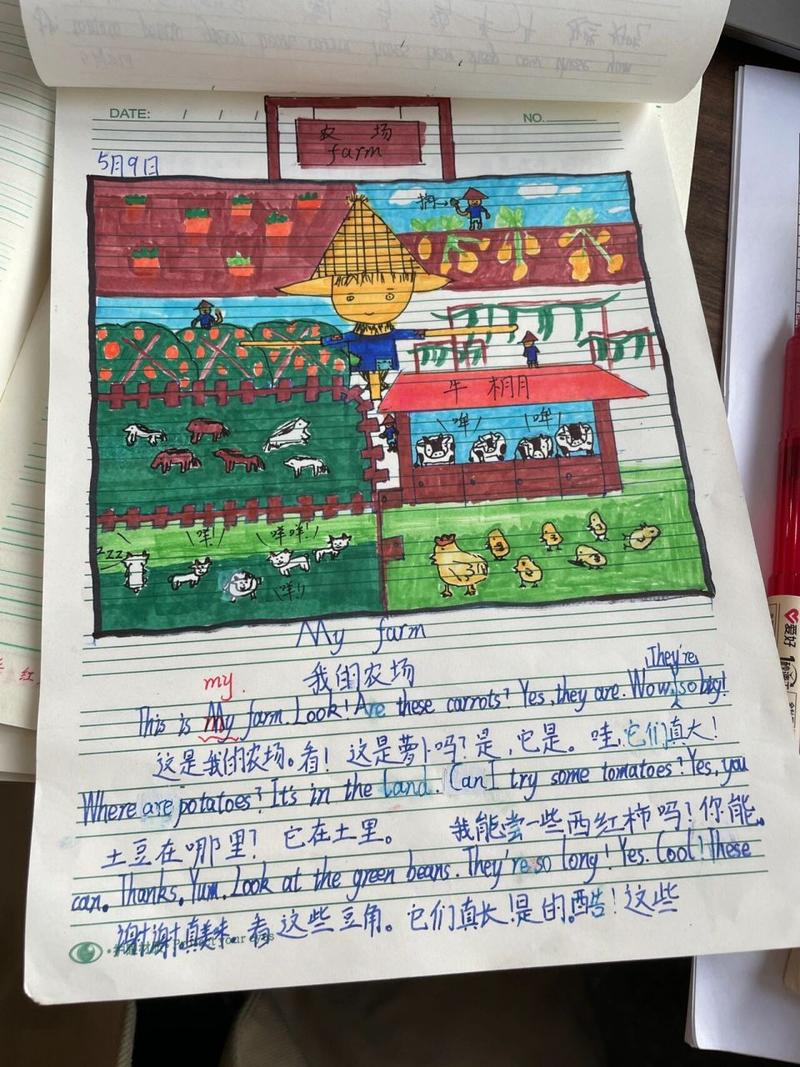 DATE: / / /
NO.
农场
farm
5月9日
牛棚
哞
哞
zzz
咩!
咩咩!
咩!!
My farm
我的农场
my.
They're
This is My farm. Look! Are these carrots? Yes, they are. Wow, so big!
这是我的农场。看! 这是萝卜吗? 是,它是。哇,它们真大!
Where are potatoes? It's in the land. Can I try some tomatoes? Yes, you
土豆在哪里? 它在土里。 我能尝一些西红柿吗? 你能。
can. Thanks. Yum. Look at the green beans. They're so long! Yes. Cool! These
谢谢,真美味。看这些豆角。它们真长!是的。酷! 这些
your eyes